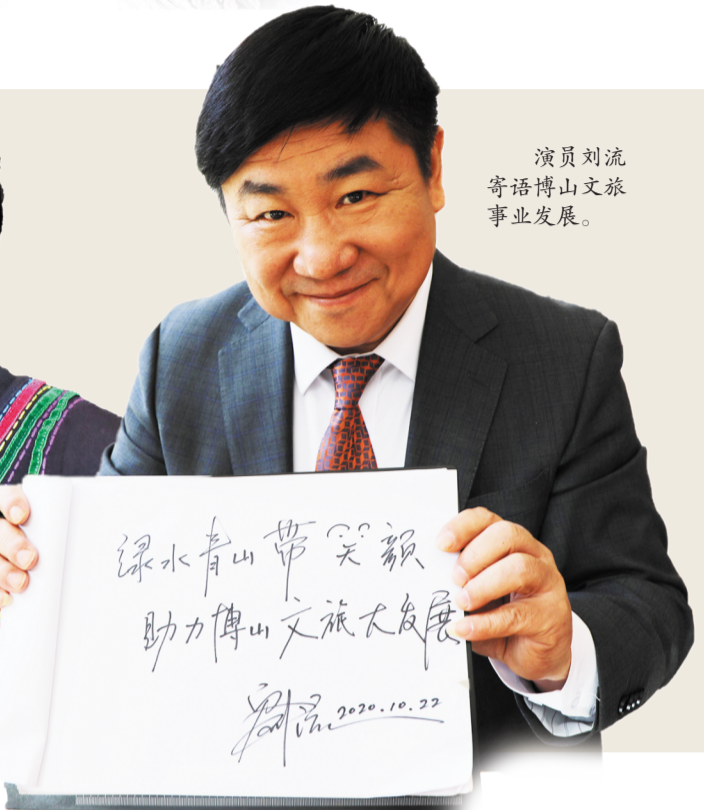 演员刘流
寄语博山文旅
事业发展。
绿水青山带笑颜
助力博山文旅大发展
刘流 2020.10.22